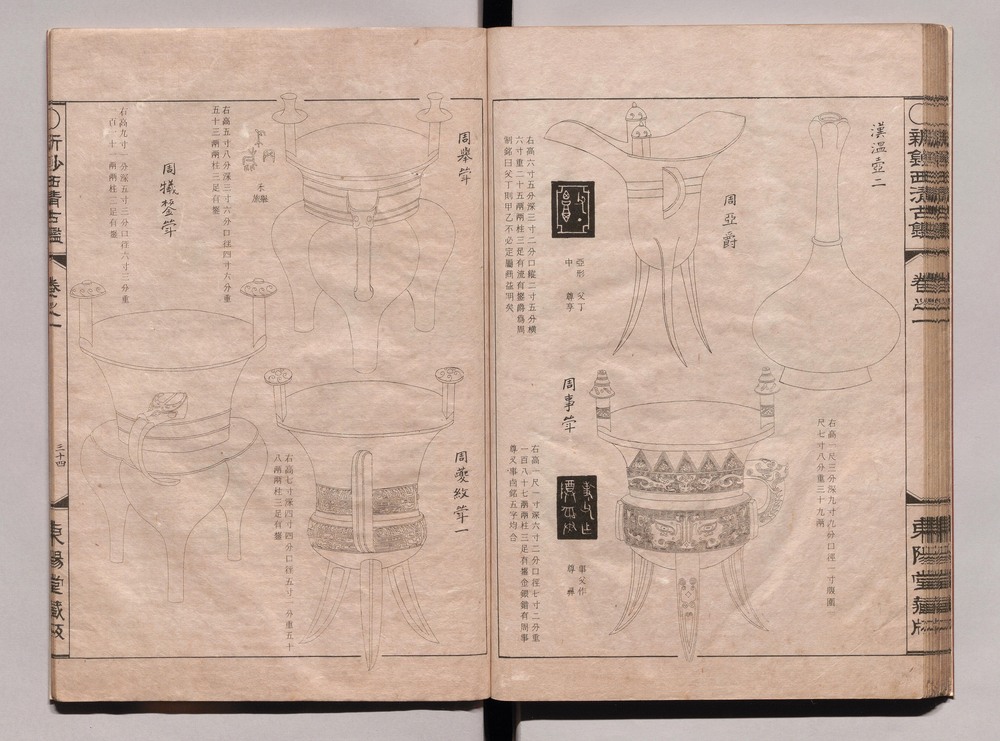 漢溫壺二
右高一尺三分深九寸九分口徑一寸腹圍
尺七寸八分重三十九兩
周亞爵
亞形 父丁
中 尊亨
右高六寸五分深三寸二分口縱二寸五分橫
六寸重二十五兩兩柱三足有流有鋬爵爲周
制銘曰父丁則甲乙不必定屬商益明矣
周事斚
事父作
尊彝
右高一尺一寸深六寸二分口徑七寸二分重
一百八十七兩兩柱三足有鋬金銀錯有周事
尊又事卣銘五字均合
周舉斚
右高五寸八分深三寸六分口徑四寸六分重
五十三兩兩柱三足有鋬
周夔紋斚一
右高七寸深四寸四分口徑五寸一分重五十
八兩兩柱三足有鋬
周犧鋬斚
右高九寸一分深五寸三分口徑六寸三分重
百一十一兩兩柱三足有鋬
新鈔西清古鑑
卷之一
三十四
東陽堂藏版